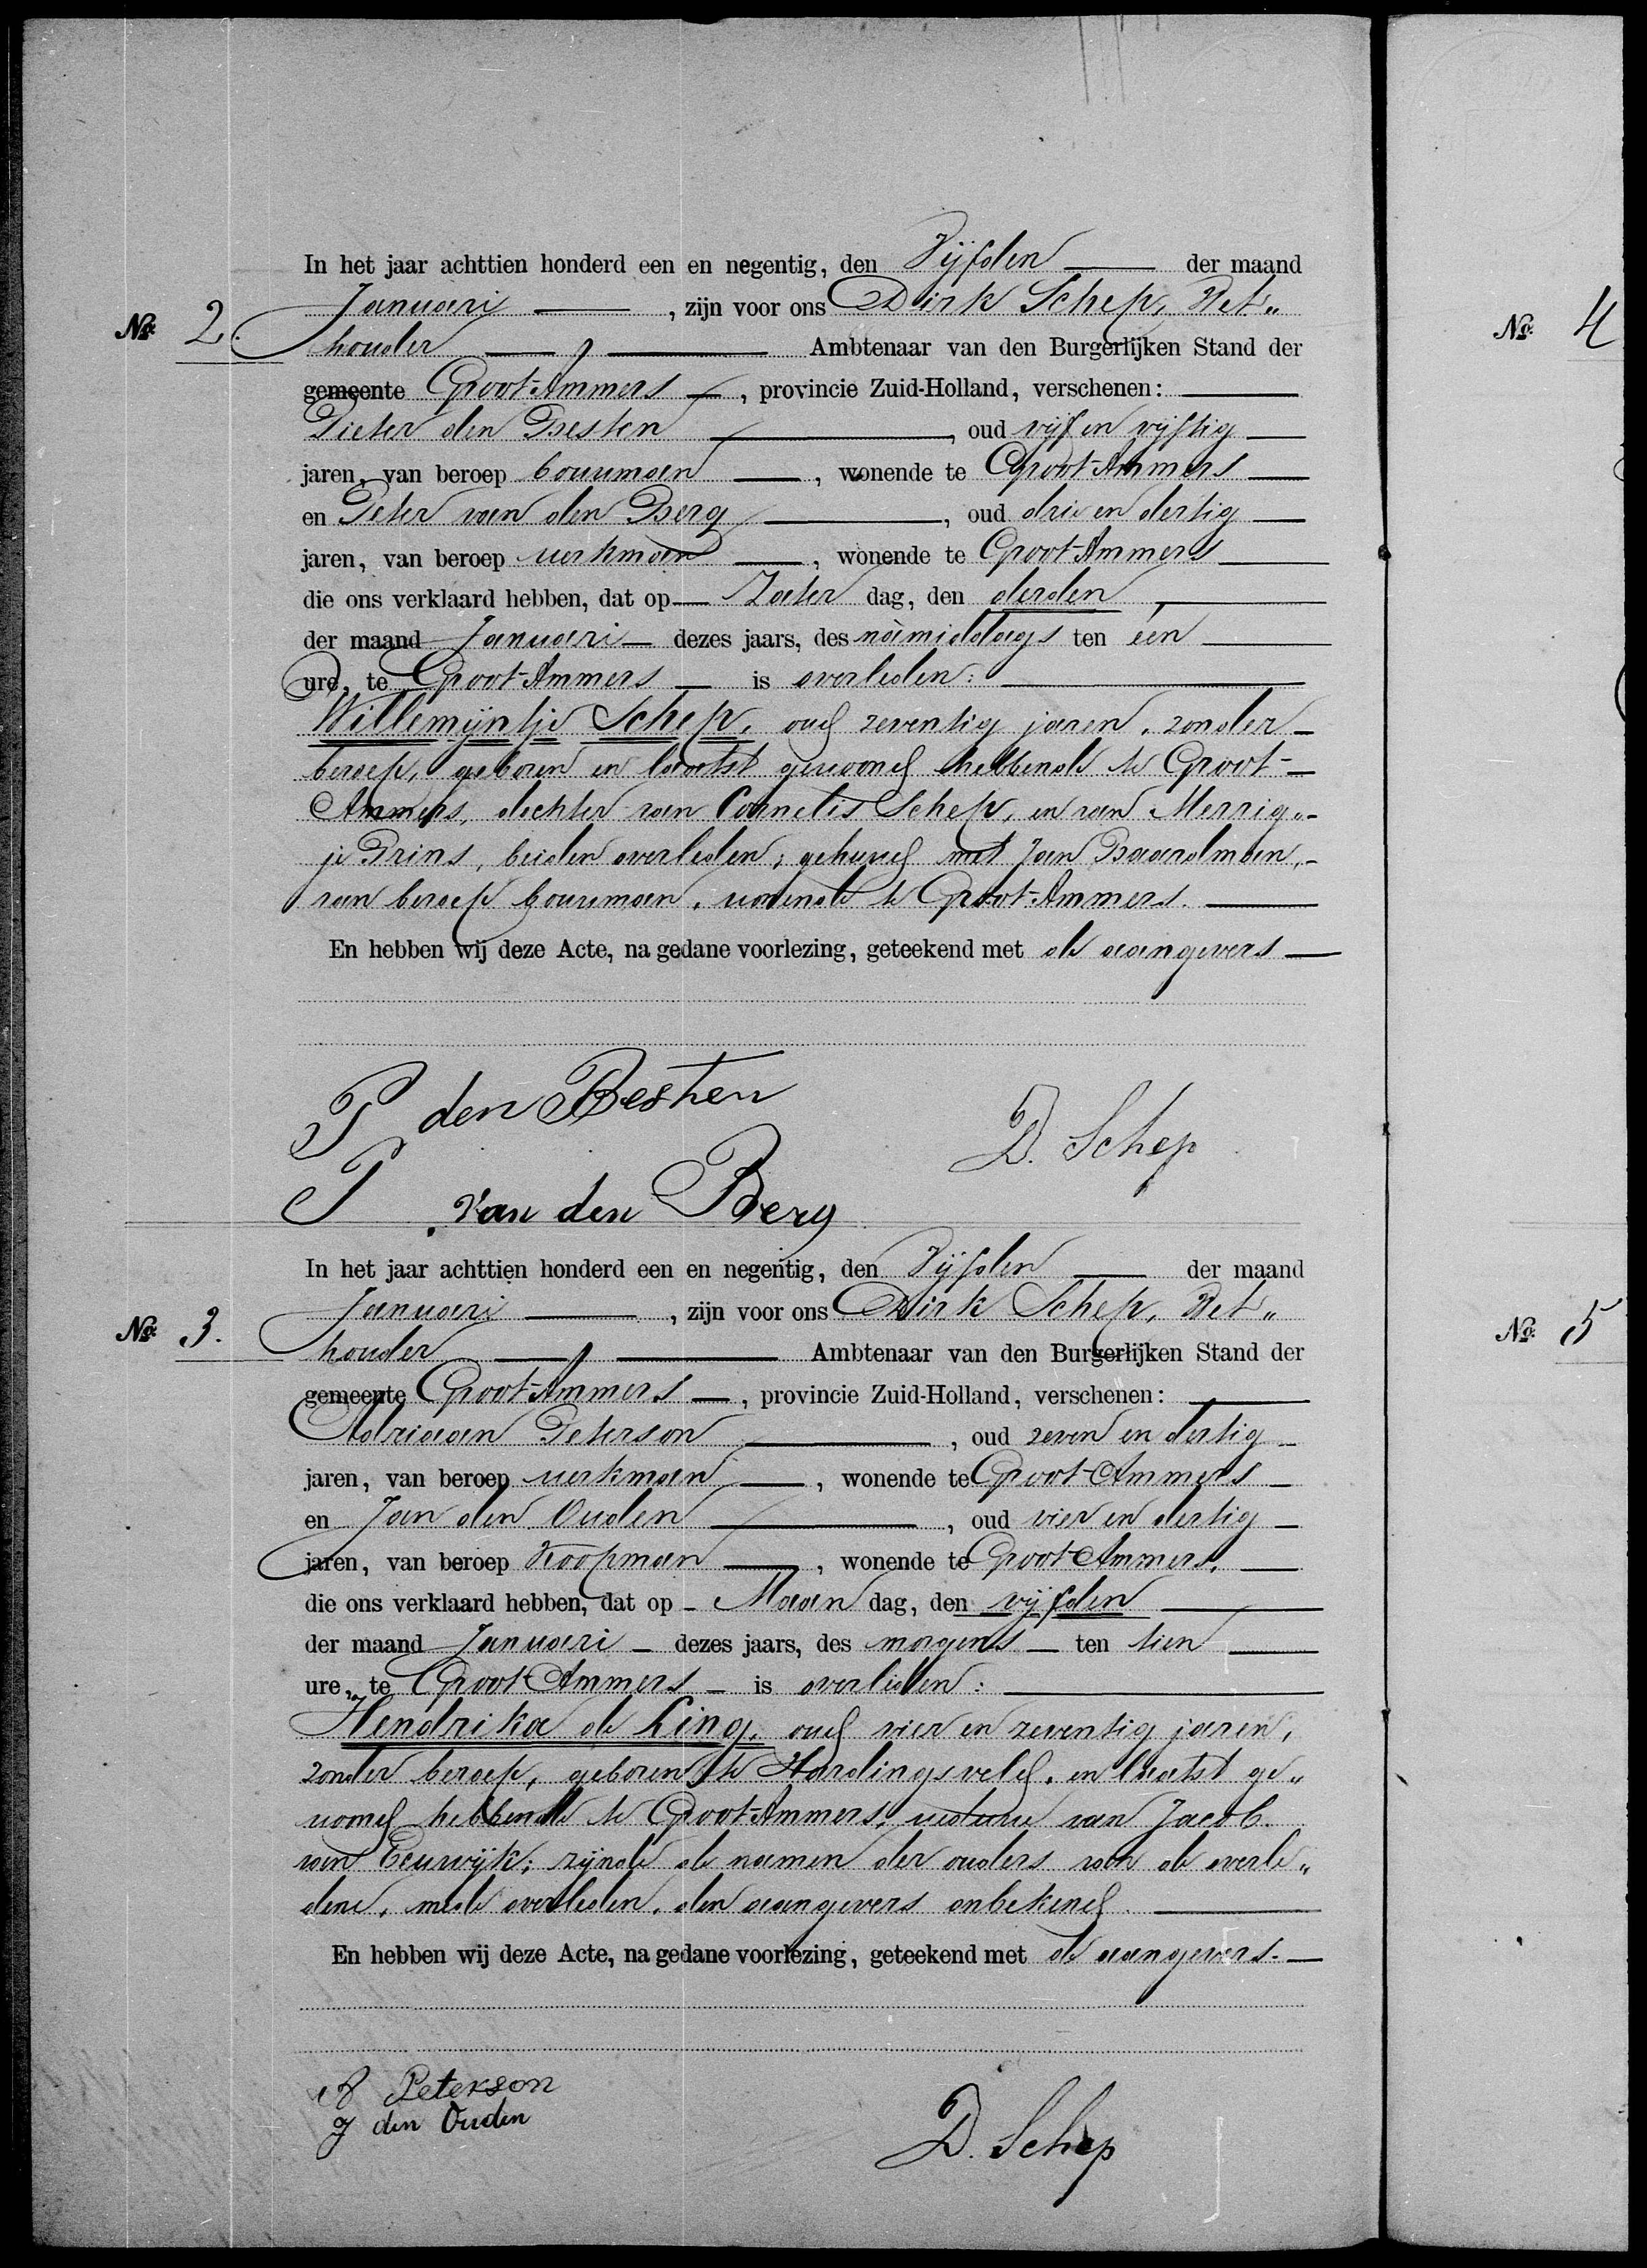 In het jaar achttien honderd een en negentig, den Vijfden der maand
Januari, zijn voor ons Dirk Schep, Wet„
No. 2. houder, Ambtenaar van den Burgerlijken Stand der
gemeente Groot-Ammers, provincie Zuid-Holland, verschenen:
Pieter den Besten, oud vijf en vijftig
jaren, van beroep bouwman, wonende te Groot-Ammers
en Peter van den Berg, oud drie en dertig
jaren, van beroep werkman, wonende te Groot-Ammers
die ons verklaard hebben, dat op Zater dag, den derden
der maand Januari dezes jaars, des námiddags ten één
ure, te Groot-Ammers is overleden:
Willemijntje Schep, oud zeventig jaren, zonder
beroep, geboren en laatst gewoond hebbende te Groot-
Ammers, dochter van Cornelis Schep, en van Merrig„
je Prins, beiden overleden; gehuwd met Jan Baardman,
van beroep bouwman, wonende te Groot-Ammers.
En hebben wij deze Acte, na gedane voorlezing, geteekend met de aangevers
P den Besten
D. Schep
P van den Berg
In het jaar achttien honderd een en negentig, den Vijfden der maand
Januari, zijn voor ons Dirk Schep, Wet„
No. 3. houder, Ambtenaar van den Burgerlijken Stand der
gemeente Groot-Ammers, provincie Zuid-Holland, verschenen:
Adriaan Peterson, oud zeven en dertig
jaren, van beroep werkman, wonende te Groot-Ammers
en Jan den Ouden, oud vier en dertig
jaren, van beroep Koopman, wonende te Groot-Ammers,
die ons verklaard hebben, dat op Maan dag, den vijfden
der maand Januari dezes jaars, des morgens ten tien
ure, te Groot-Ammers is overleden:
Hendrika de Ling, oud vier en zeventig jaren,
zonder beroep, geboren te Hardingsveld, en laatst ge„
woond hebbende te Groot-Ammers, weduwe van Jacob
van Eeuwijk; zijnde de namen der ouders van de overle„
dene, mede overleden, den aangevers onbekend.
En hebben wij deze Acte, na gedane voorlezing, geteekend met de aangevers.
A Peterson
J den Ouden
D. Schep
No. 4
No. 5